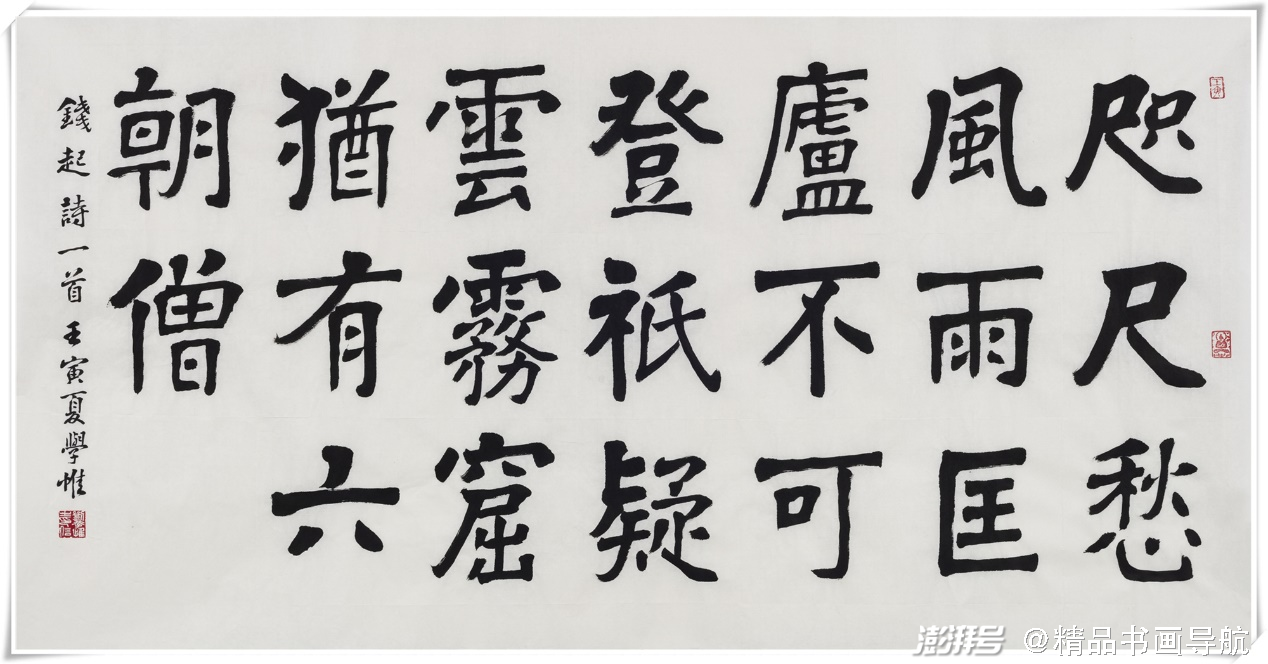 咫尺愁
風雨匡
廬不可
登祇疑
雲霧窟
猶有六
朝僧
錢起詩一首壬寅夏學惟
澎湃号 @精品书画导航